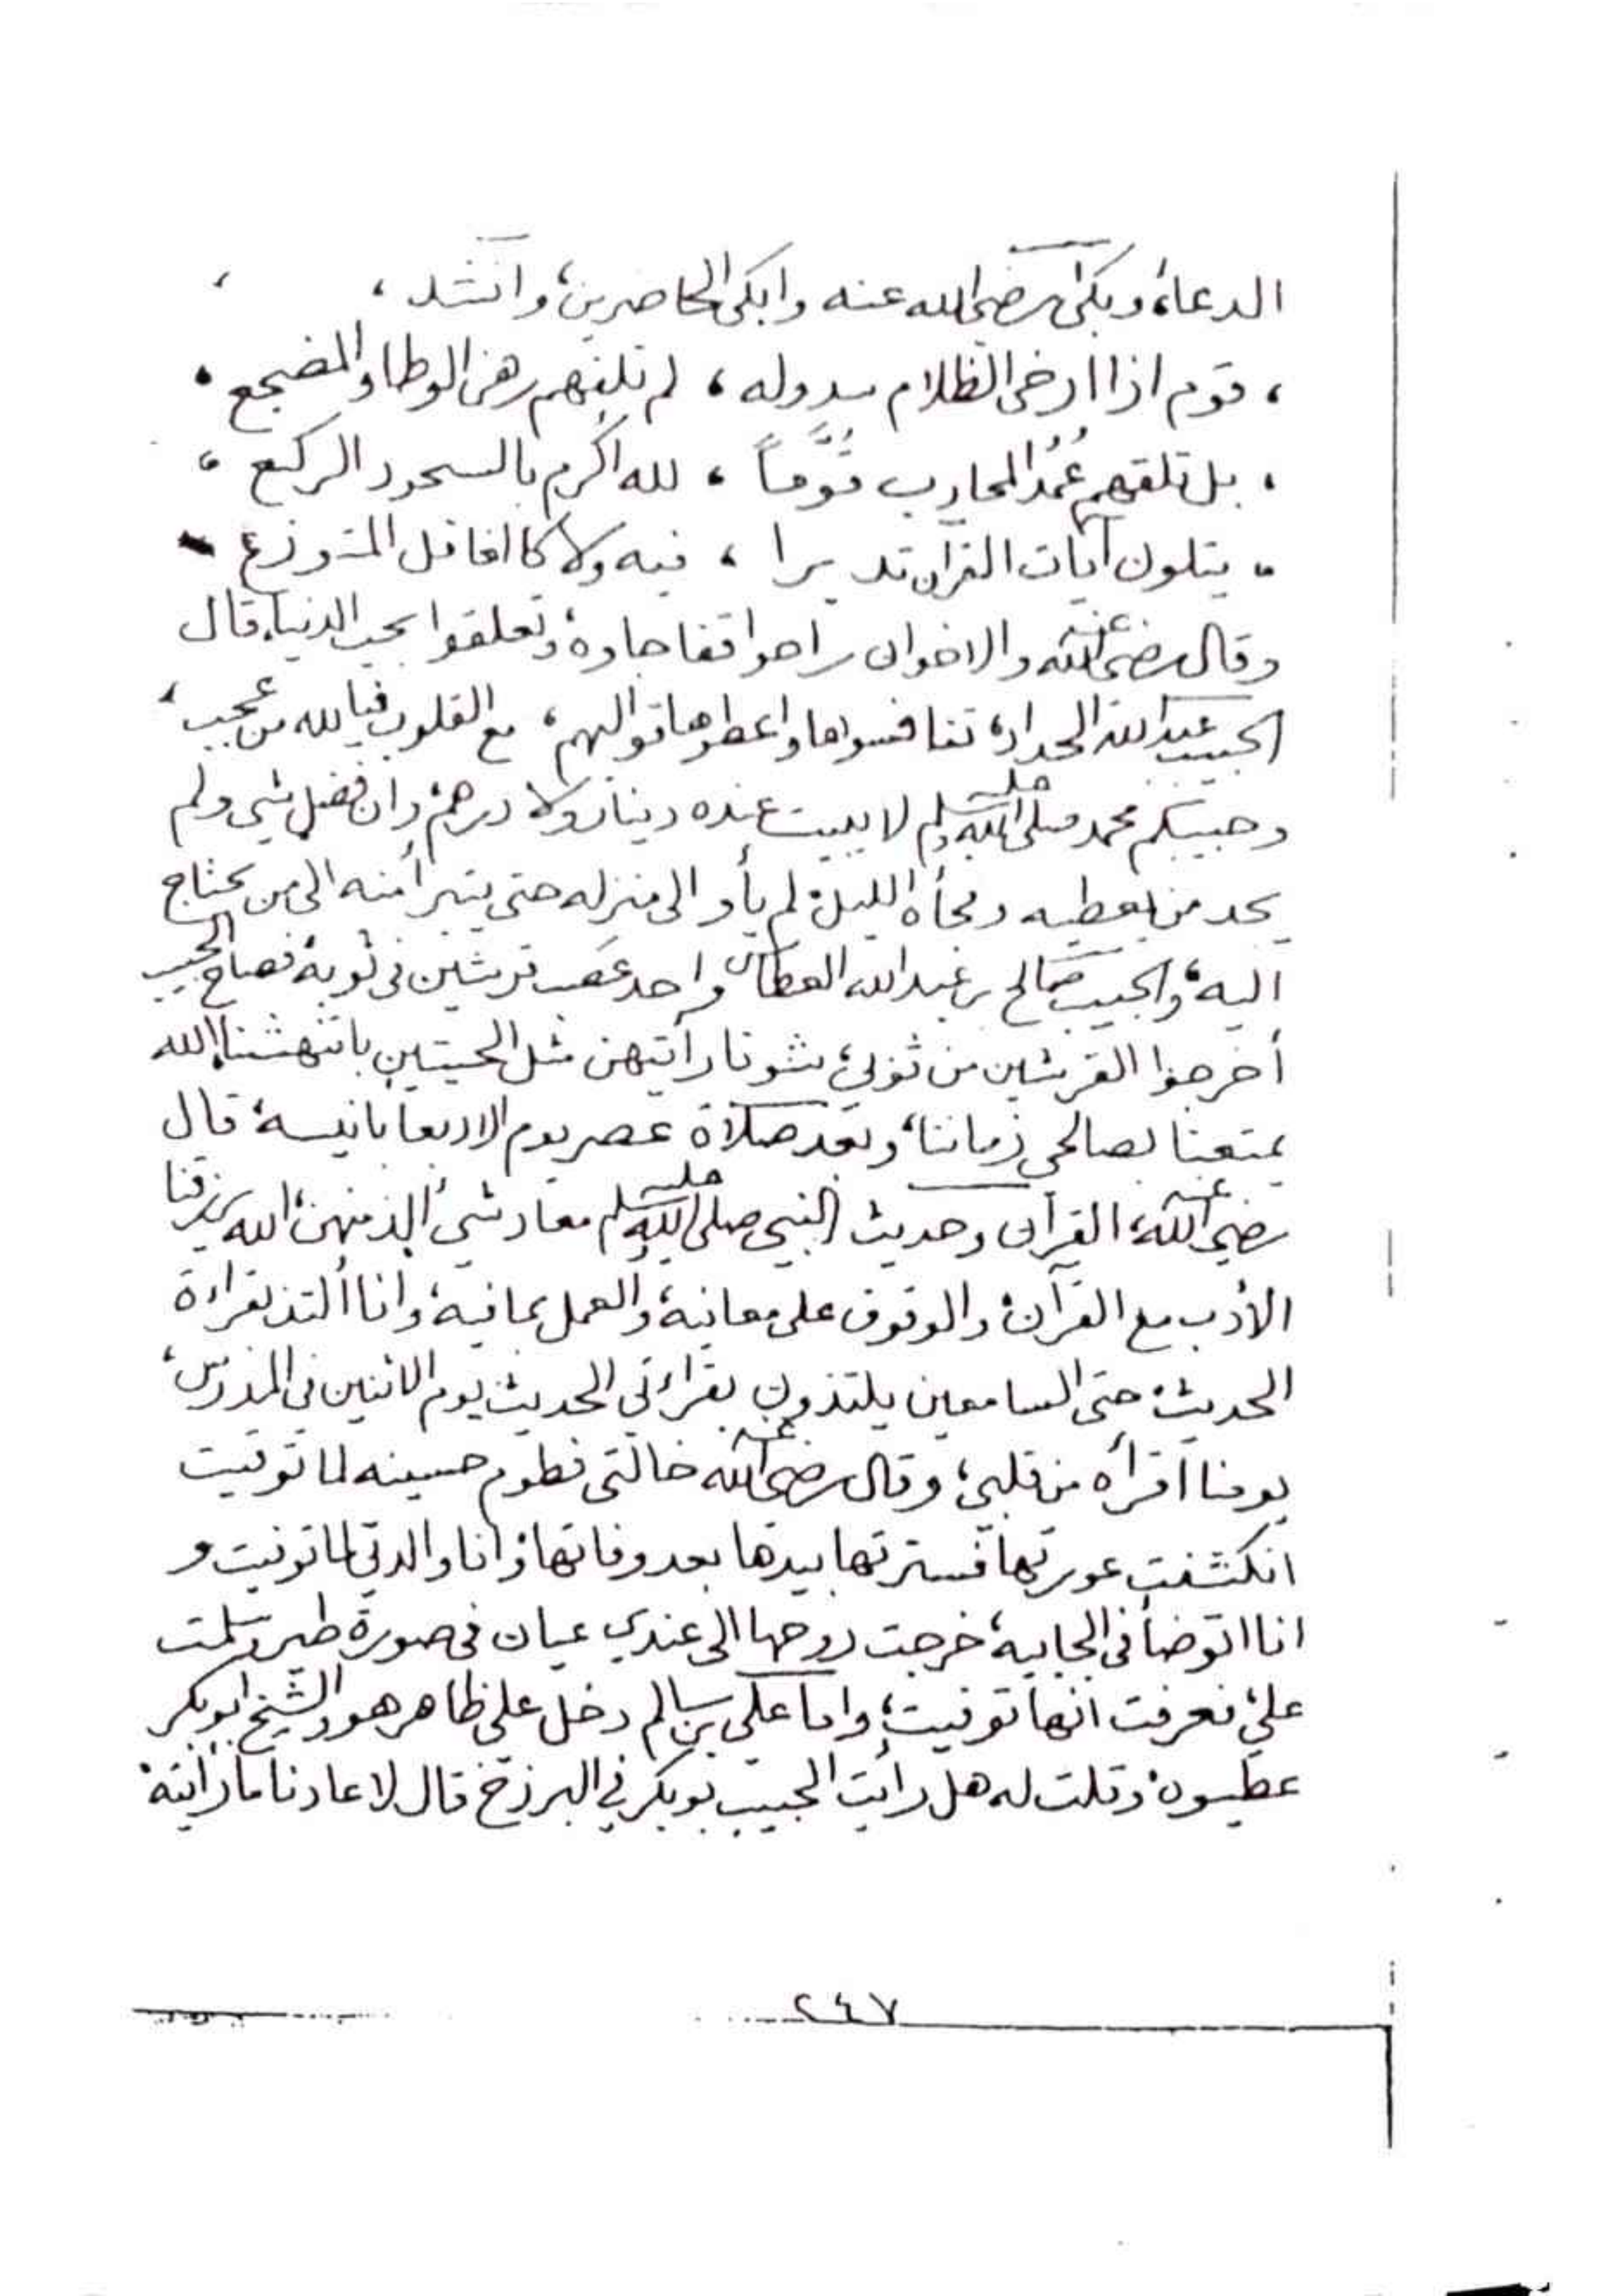 الدعاء، وبكى رضي الله عنه وابكى الحاضرين، وانشد،
، قوم اذا ارخى الظلام سدوله ، لم تلفهم رهن الوطا والمضجع ،
، بل تلقهم عُمُد المحارب قُوَّماً ، لله اكرم بالسجود الركع ،
، يتلون آيات القرآن تدبرا ، فيه ولا كالغافل المتوزع
وقال رضي الله عنه والاخوان راحوا قفا جاوة، وتعلقوا بحب الدنيا، قال
الحبيب عبد الله الحداد، تنافسوها واعطوها قوالبهم، مع القلوب فيا لله من عجب،
وحبيبكم محمد صلى الله عليه وسلم لا يبيت عنده دينار ولا درهم، وان فضل شي ولم
يجد من يعطيه وفجأه الليل، لم يأو الى منزله حتى يتبرأ منه الى من يحتاج
اليه، والحبيب صالح بن عبد الله العطاس واحد عصب قرشين في ثوبه، فصاح الحبيب
أخرجوا القرشين من ثوبي، شونا رأيتهن مثل الحيتين باتنهشنا، الله
يمتعنا بصالحي زماننا، وبعد صلاة عصر يوم الاربعا بانيسه، قال
رضي الله عنه، القرآن وحديث النبي صلى الله عليه وسلم معاد شي ألذ منهن، الله يرزقنا
الأدب مع القرآن، والوقوف على معانيه، والعمل بمافيه، وانا ألتذ بقراءة
الحديث، حتى السامعين يلتذون بقراءتي الحديث يوم الاثنين في المدرس،
يومنا اقرأه من قلبي، وقال رضي الله عنه خالتي فطوم حسينه لما توفيت
انكشفت عورتها فسترتها بيدها بعد وفاتها، وانا والدتي لما توفيت و
انا اتوضأ في الجابية، خرجت روحها الى عندي عيان في صورة طير وسلمت
علي، فعرفت انها توفيت، واما علي بن سالم دخل علي ظاهر هو والشيخ ابوبكر
عطيبوه، وقلت له هل رأيت الحبيب بوبكر في البرزخ قال لا عادنا ما رأيته،
٢٤٧